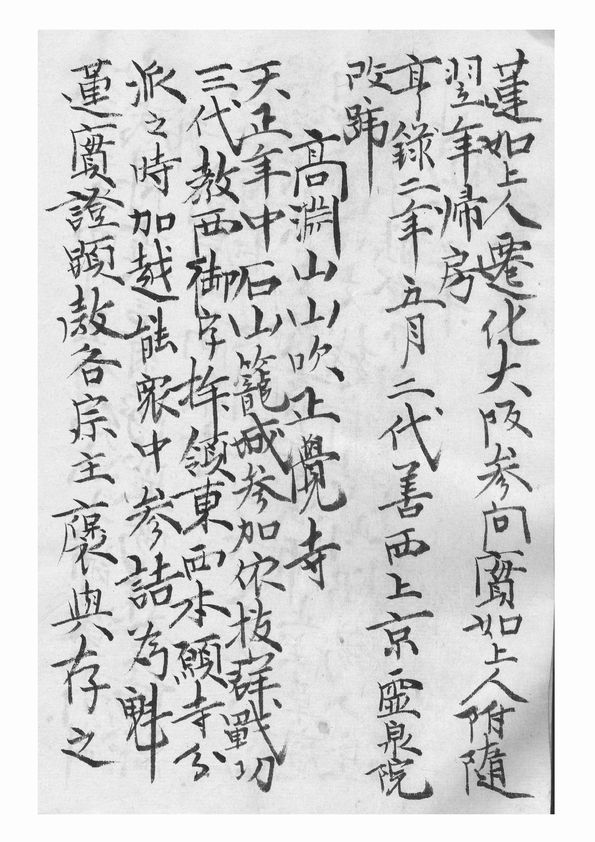 蓮如上人遷化大阪参向實如上人附随
翌年帰房
享録二年五月二代善西上京霊泉院
改號
高淵山山吹正覺寺
天正年中石山籠城参加依抜群戰功
三代教西御字拝領東西本願寺分
派之時加越能衆中参詰為魁
蓮實證顕教各宗主褒與存之